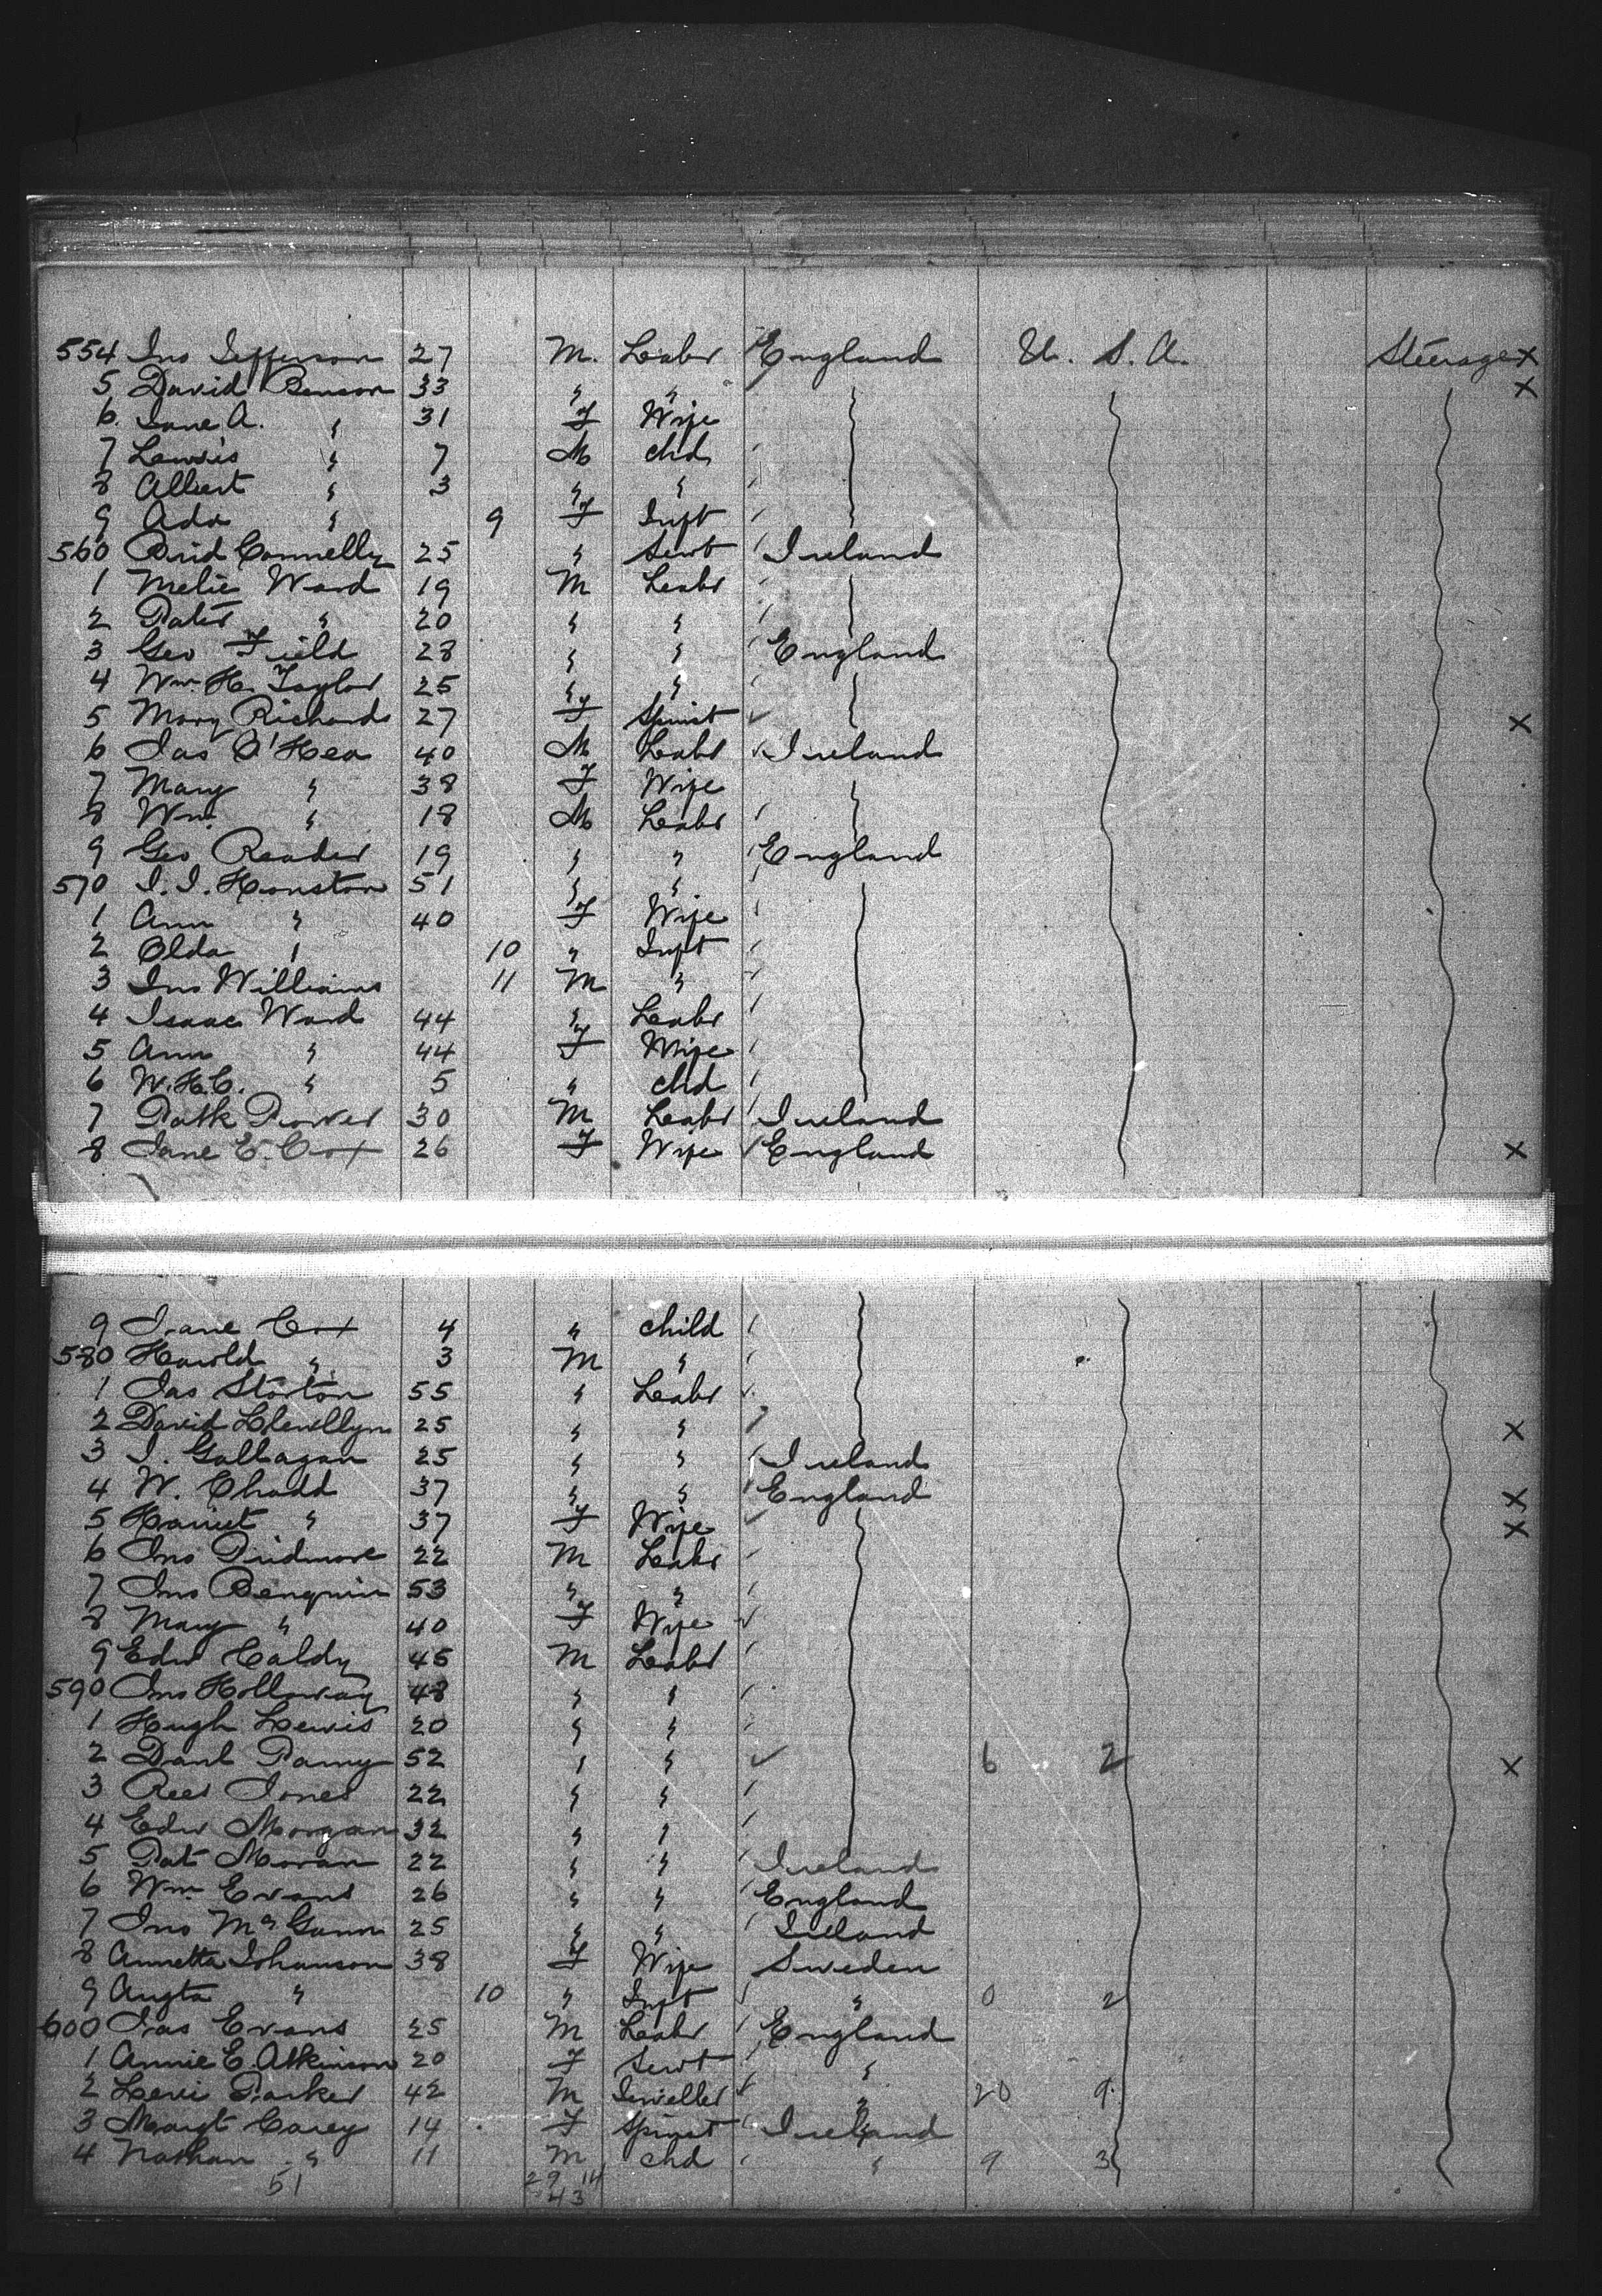 554 Jno Jefferson 27 M. Labr England U. S. A. Steerage x
5 David Benson 33 " " x
6. Jane A. " 31 F Wife
7 Lewis " 7 M chd
8 Albert " 3 " "
9 Ada " 9 F Inft
560 Brid Connelly 25 " Servt Ireland
1 Melie Ward 19 M Labr
2 Pater " 20 " "
3 Geo Field 28 " " England
4 Wm. H. Taylor 25 " "
5 Mary Richards 27 F Spinst x
6 Jas O'Hea 40 M Labr Ireland
7 Mary " 38 F Wife
8 Wm. " 18 M Labr
9 Geo Reader 19 " " England
570 J. J. Houston 51 " "
1 Ann " 40 F Wife
2 Olda " 10 " Inft
3 Jno Williams 11 M "
4 Isaac Ward 44 " Labr
5 Ann " 44 F Wife
6 W.H.C. " 5 " chd
7 Patk Power 30 M Labr Ireland
8 Jane E. Cox 26 F Wife England x
9 Jane Cox 4 " child
580 Harold " 3 M "
1 Jas Storton 55 " Labr
2 David Llewllyn 25 " " x
3 J. Gallagan 25 " " Ireland
4 W. Chadd 37 " " England x
5 Harriet " 37 F Wife x
6 Jno Pridmore 22 M Labr
7 Jno Benquin 53 " "
8 Mary " 40 F Wife
9 Edw Caldy 45 M Labr
590 Jno Holloway 48 " "
1 Hugh Lewis 20 " "
2 Danl Parry 52 " " 6 2 x
3 Rees Jones 22 " "
4 Edw Morgan 32 " "
5 Pat Moran 22 " " Ireland
6 Wm Evans 26 " " England
7 Jno McGann 25 " " Ireland
8 Annetta Johanson 38 F Wife Sweden
9 Augta " 10 " Inft " 0 2
600 Jas Evans 25 M Labr England
1 Annie E. Atkinson 20 F Servt "
2 Levi Parker 42 M Jeweller " 20 9
3 Margt Carey 14 F Spinst Ireland
4 Nathan " 11 M chd " 9 3
51 29 14
43